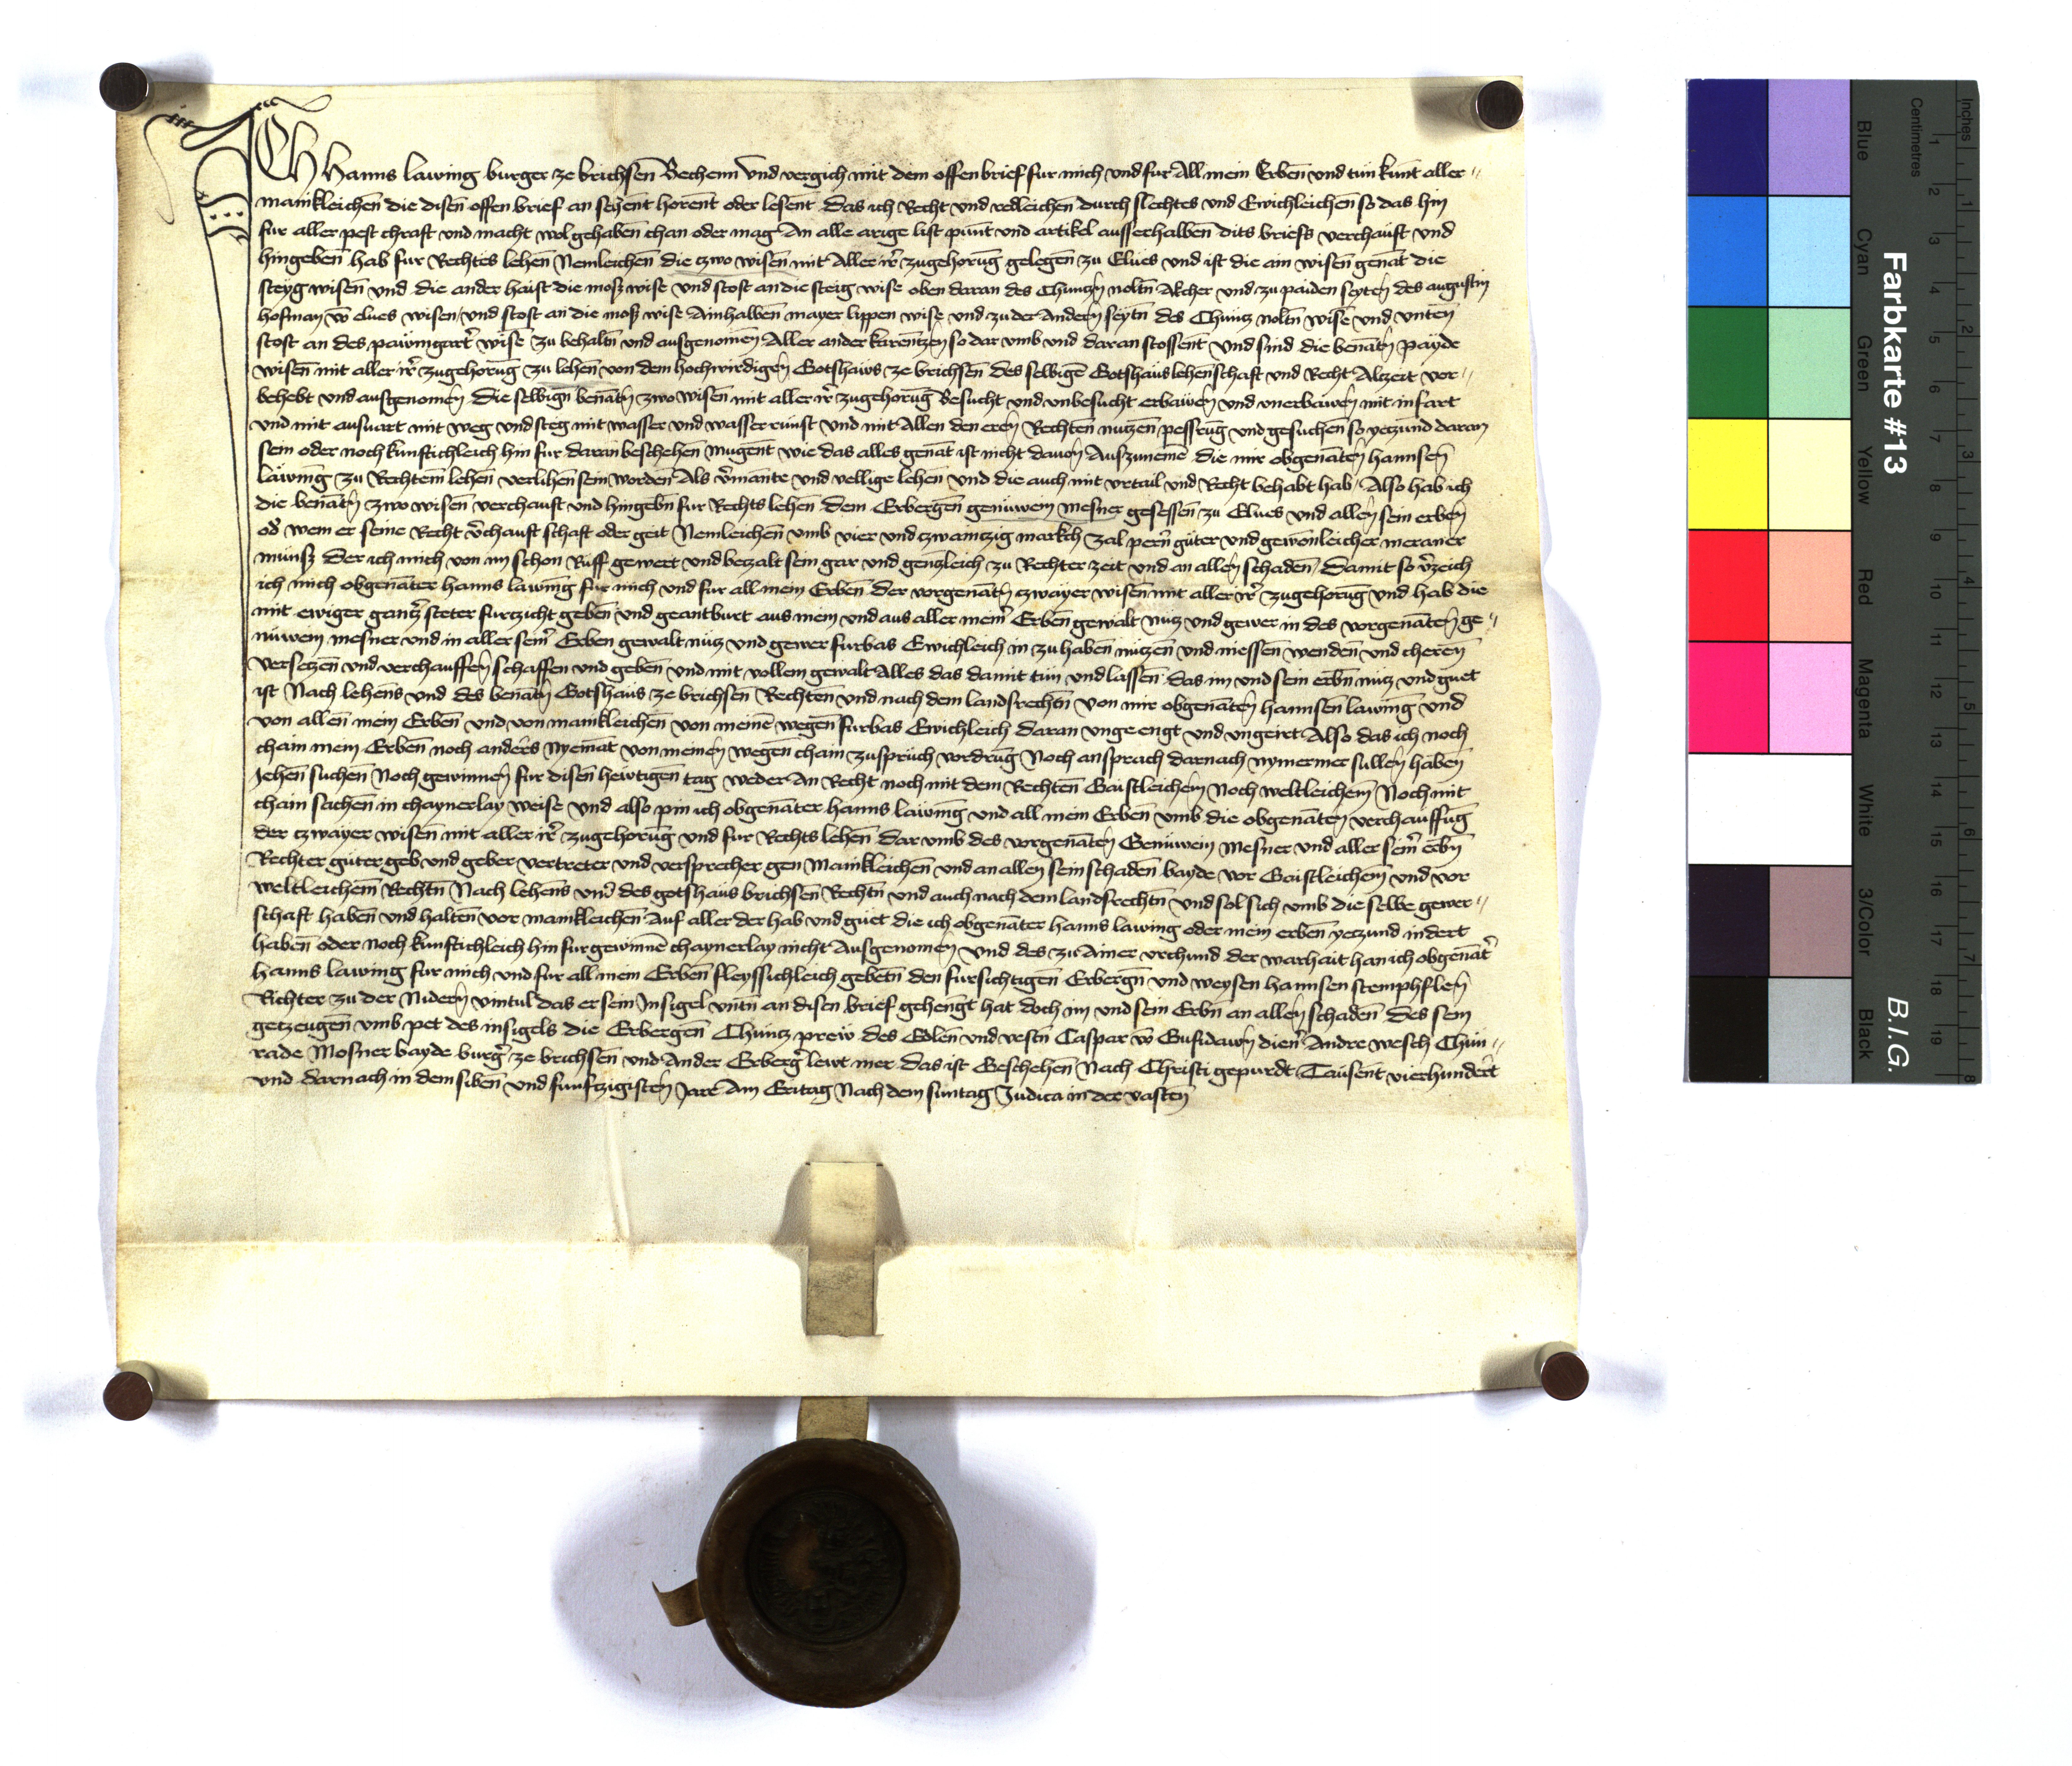 ICH Hanns lawing burger ze brichsen̄ Bechenn vnd vergich mit dem offen brief fur mich vnd fur All mein Erben̄ vnd tun kunt aller
mainkleichen̄ die disen̄ offen brief an sehent horent oder lesent das ich Recht vnd redleichen̄ durch slechtes vnd Ewichleichen̄ so das hin
fur aller pest chraft vnd macht wol gehaben̄ chan oder mag An alle arige list punt vnd artikel ausserhalben̄ dits briefs verchauft vnd
hingeben̄ hab fur Rechtes lehen̄ Nemleichen̄ die czwo wisen̄ mit Aller ir̄ zugehorūg gelegen̄ zu Elues vnd ist die ain wisen̄ genāt die
steyg wisen̄ vnd die ander haist die mosz wise vnd stost an die steig wise oben daran des Chunczn̄ noltn̄ Akcher vnd zu paiden seyten̄ des augustin
hofman v̄ elues wisen vnd stost an die mosz wise Ainhalben̄ mayer lippen wise vnd zu der Andern̄ seytn̄ des Chuncz noltn̄ wise vnd vnten
stost an des pawmgart̄ wise zu behaltn̄ vnd ausgenomen̄ Aller ander karentzen so dar vmb vnd daran stossent vnd sind die benātn̄ payde
wisen̄ mit aller ir̄ zugehorūg zu lehen̄ von dem hochwirdigen̄ Gotshaws ze brichsen̄ des selbigen̄ Gotshaus lehenschaft vnd Recht Alzeit vor
behebt vnd ausgenomen̄ die selbign̄ benātn̄ zwo wisen̄ mit aller ir̄ zugehorūg Besucht vnd vnbesucht erbawen̄ vnd vnerbawen̄ mit infart
vnd mit ausuart mit weg vnd steg mit wasser vnd wasserrunst vnd mit Allen den eren̄ Rechten nutzen̄ pesserūg vnd gesuchen̄ so yetzund daran
sein oder noch kunftichleich hin fur daran beschehen̄ mugent wie das alles genāt ist nicht dauon̄ Auszunemē die mir obgenāten̄ hannsen̄
lawing zu Rechtem lehen̄ verlihen̄ sein worden̄ Als v̄mante vnd vellige lehen̄ vnd die auch mit vrtail vnd Recht behabt hab Also hab ich
die benātn̄ zwo wisen̄ verchauft vnd hingebn̄ fur Rechts lehen̄ dem Erbergen̄ genuwein mesner gesessen̄ zu Elues vnd allen̄ sein erben̄
od̄ wem er seine Recht v̄chauft schaft oder geit Nemleichen̄ vmb vier vnd czwainczig markch zal pern̄ guter vnd gewonleicher meraner
munsz der ich mich von im schon Ruff gewert vnd bezalt sein gar vnd genczleich zu Rechter zeit vnd an allen̄ schaden̄ Damit so v̄zeich
ich mich obgenāter hanns lawing fur mich vnd fur all mein Erben̄ der vorgenātn̄ czwayer wisen̄ mit aller ir̄ zugehorūg vnd hab die
mit ewiger gantz steter furczicht geben̄ vnd geantburt aus mein vnd aus aller mein̄ Erben̄ gewalt nucz vnd gewer in des vorgenāten̄ ge
nuwein mesner vnd in aller sein̄ Erben gewalt nucz vnd gewer furbas Ewichleich in zu haben̄ nuczen̄ vnd niessen̄ wenden̄ vnd cheren̄
versetzen̄ vnd verchauffen̄ schaffen vnd geben̄ vnd mit vollem gewalt Alles das damit tun vnd lassen̄ das im vnd sein erbn̄ nucz vnd guet
ist Nach lehens vnd des benātn̄ Gotshaus ze brichsen̄ Rechten̄ vnd nach dem landsrechtn̄ von mir obgenāten̄ hannsen̄ lawing vnd
von allen̄ mein Erben̄ vnd von mainkleichen̄ von meinē wegen̄ furbas Ewichleich daran vngeengt vnd vngeiret Also das ich noch
chain mein Erben̄ noch anders nyemāt von meinen̄ wegen̄ chain zuspruch vordrūg Noch ansprach darnach nymermer sullen̄ haben̄
Jehen̄ suchen̄ Noch gewinnen̄ fur disen̄ hewtigen̄ tag weder An Recht noch mit dem Rechten̄ Gaistleichem̄ Noch weltleichem̄ Noch mit
chain sachen̄ in chaynerlay weise vnd also pin ich obgenāter hanns lawing vnd all mein Erben̄ vmb die obgenāten̄ verchauffūg
der czwayer wisen̄ mit aller ir̄ zugehorūg vnd fur Rechts lehen̄ dar vmb des vorgenāten̄ Genuwein Mesner vnd aller sein̄ erbn̄
Rechter guter geb vnd geber vertreter vnd versprecher gen Mainkleichen̄ vnd an allen sein schaden̄ bayde vor Gaistleichem̄ vnd vor
weltleichem̄ Rechtn̄ Nach lehens vnd des gotshaus brichsen̄ Rechtn̄ vnd auch nach dem landsrechtn̄ vnd sol sich vmb die selbe gewer
schaft haben̄ vnd halten̄ vor mainkleichen̄ Auf aller der hab vnd guet die ich obgenāter hanns lawing oder mein erben̄ yetzund indert
haben̄ oder noch kunftichleich hin fur gewinnē chaynerlay nicht Ausgenomen̄ vnd des zu Ainer vrchund der warhait han ich obgenāt̄
hanns lawing fur mich vnd fur all mein Erben̄ fleyssichleich gebetn̄ den fursichtigen̄ Erbergn̄ vnd weysen hannsen stemphflen̄
Richter zu der Nidern̄ vintul das er sein Insigel vntn̄ an disen brief gehengt hat doch im vnd sein Erbn̄ an allen̄ schaden̄ des sein
getzeugen̄ vmb pet des insigels die Erbergen̄ Chuncz prew des Edlen̄ vnd vestn̄ Caspar v̄ Gufidawn̄ dien̄ Andre wesch Chun
rade Mosner bayde burḡ ze brichsen̄ vnd Ander Erberḡ lewt mer das ist Geschehen̄ Nach Christi gepurdt Tausent vierhundert
vnd darnach in dem siben̄ vnd funfzigisten̄ Jare Am Eritag Nach dem suntag Judica in der vasten
Farbkarte #13
B.I.G.
Blue
Cyan
Green
Yellow
Red
Magenta
White
3/Color
Black
Centimetres
Inches
1 2 3 4 5 6 7 8 9 10 11 12 13 14 15 16 17 18 19
1 2 3 4 5 6 7 8